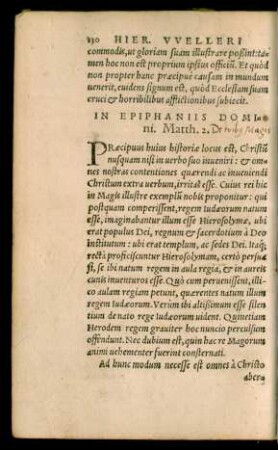 230 HIER. VVELLERI
commodis, ut gloriam suam illustrare possint: ta=
men hoc non est proprium ipsius officiũ. Et quòd
non propter hanc præcipuè causam in mundum
uenerit, euidens signum est, quòd Ecclesiam suam
cruci & horribilibus afflictionibus subiecit.
IN EPIPHANIIS DOMI=
ni. Matth. 2. De tribus Magis
PRæcipuus huius historiæ locus est, Christũ
nusquam nisi in uerbo suo inueniri: & om=
nes nostras contentiones quærendi ac inueniendi
Christum extra uerbum, irritas esse. Cuius rei hic
in Magis illustre exemplũ nobis proponitur: qui
postquam comperissent, regem Iudæorum natum
esse, imaginabantur illum esse Hierosolymæ, ubi
erat populus Dei, regnum & sacerdotium à Deo
institutum: ubi erat templum, ac sedes Dei. Itaq;
rectà proficiscuntur Hierosolymam, certò persua
si, se ibi natum regem in aula regia, & in aureis
cunis inuenturos esse. Quò cum peruenissent, illi=
co aulam regiam petunt, quærentes natum illum
regem Iudæorum. Verùm ibi altissimum esse silen
tium de nato rege Iudæorum uident. Quinetiam
Herodem regem grauiter hoc nuncio perculsum
offendunt. Nec dubium est, quin hac re Magorum
animi uehementer fuerint consternati.
Ad hunc modum necesse est omnes à Christo
aberra